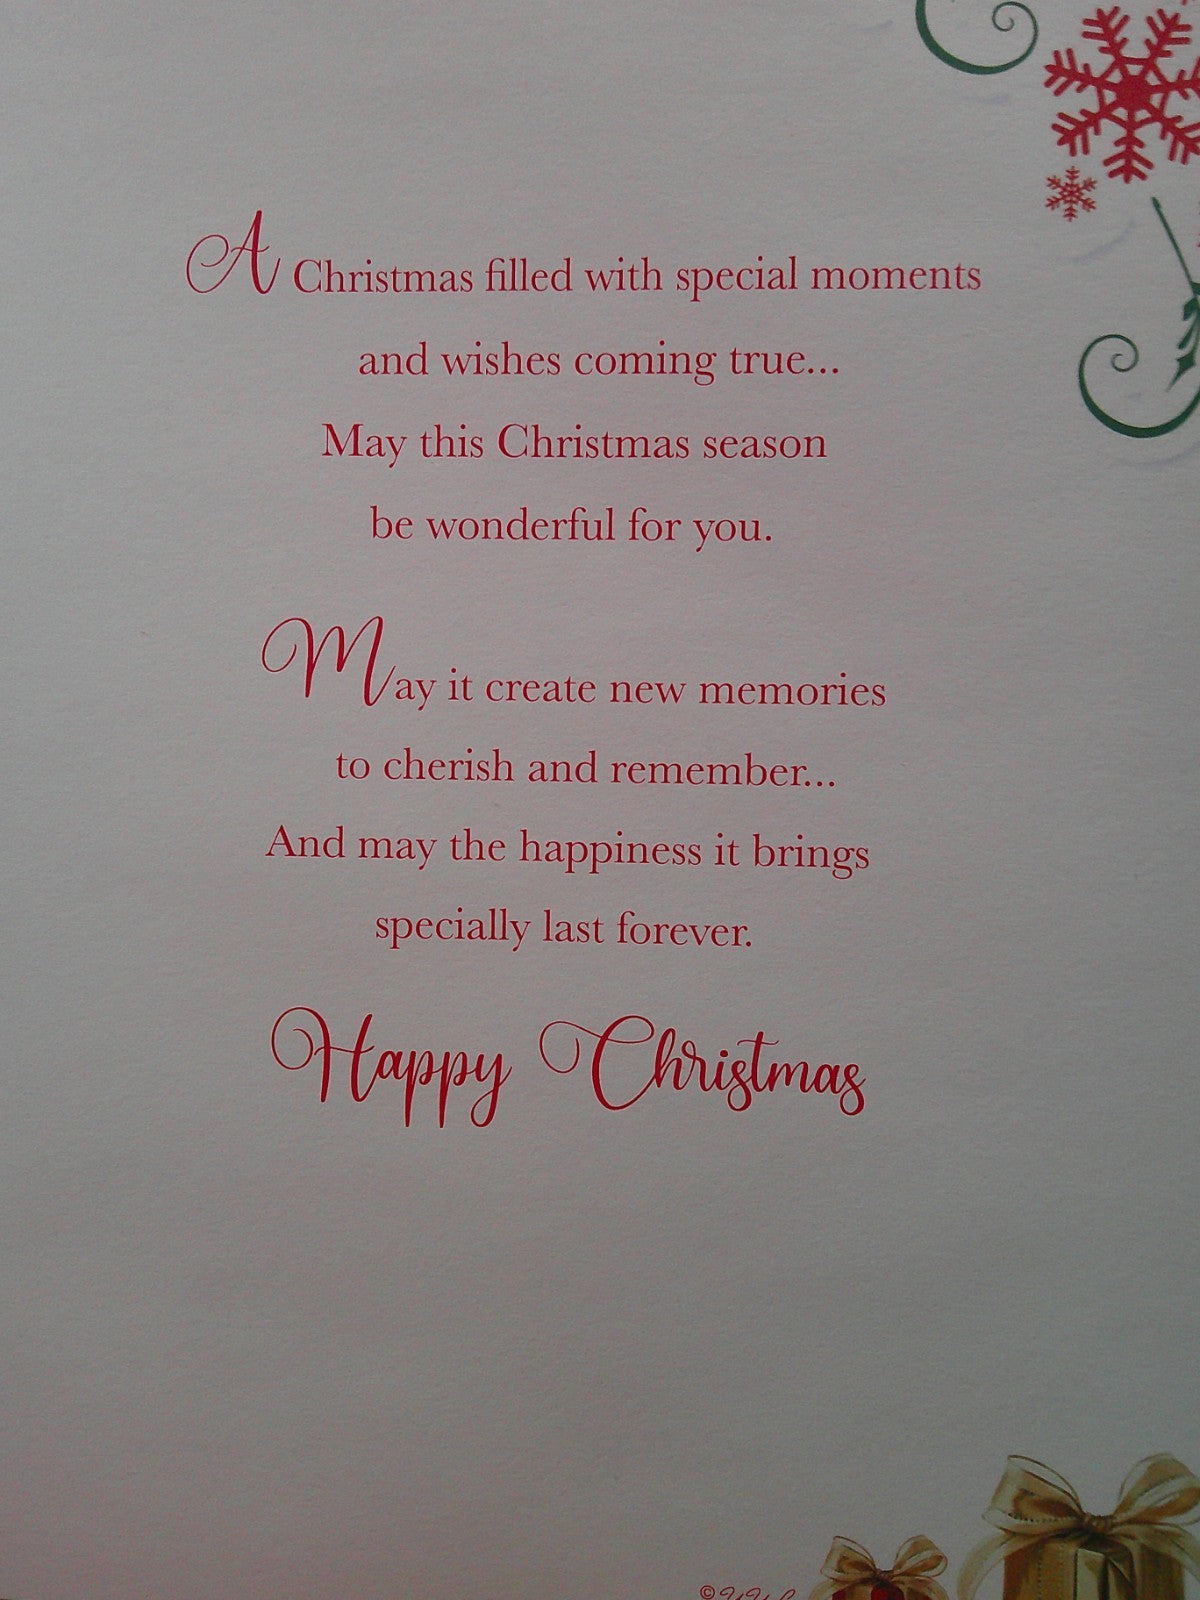 A Christmas filled with special moments
and wishes coming true...
May this Christmas season
be wonderful for you.
May it create new memories
to cherish and remember...
And may the happiness it brings
specially last forever.
Happy Christmas
©